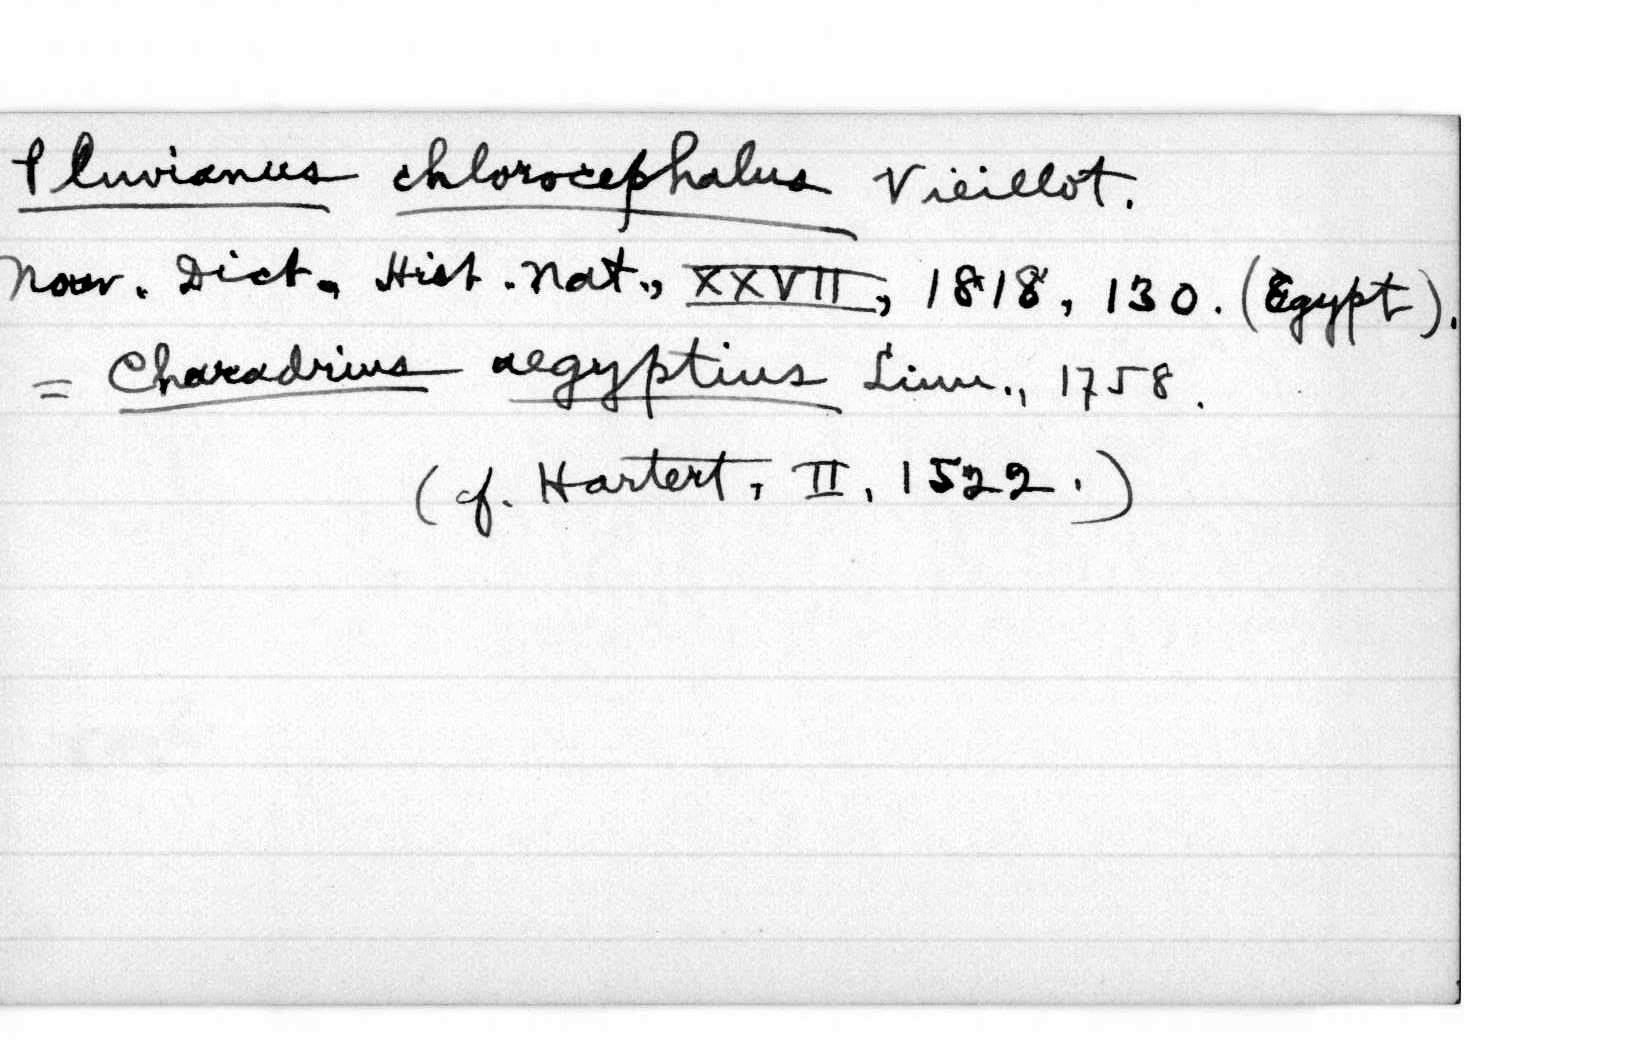 Pluvianus chlorocephalus Vieillot.
Nouv. Dict. Hist. Nat., XXVII, 1818, 130. (Egypt).
= Charadrius aegyptius Linn., 1758.
(cf. Hartert, II, 1522.)